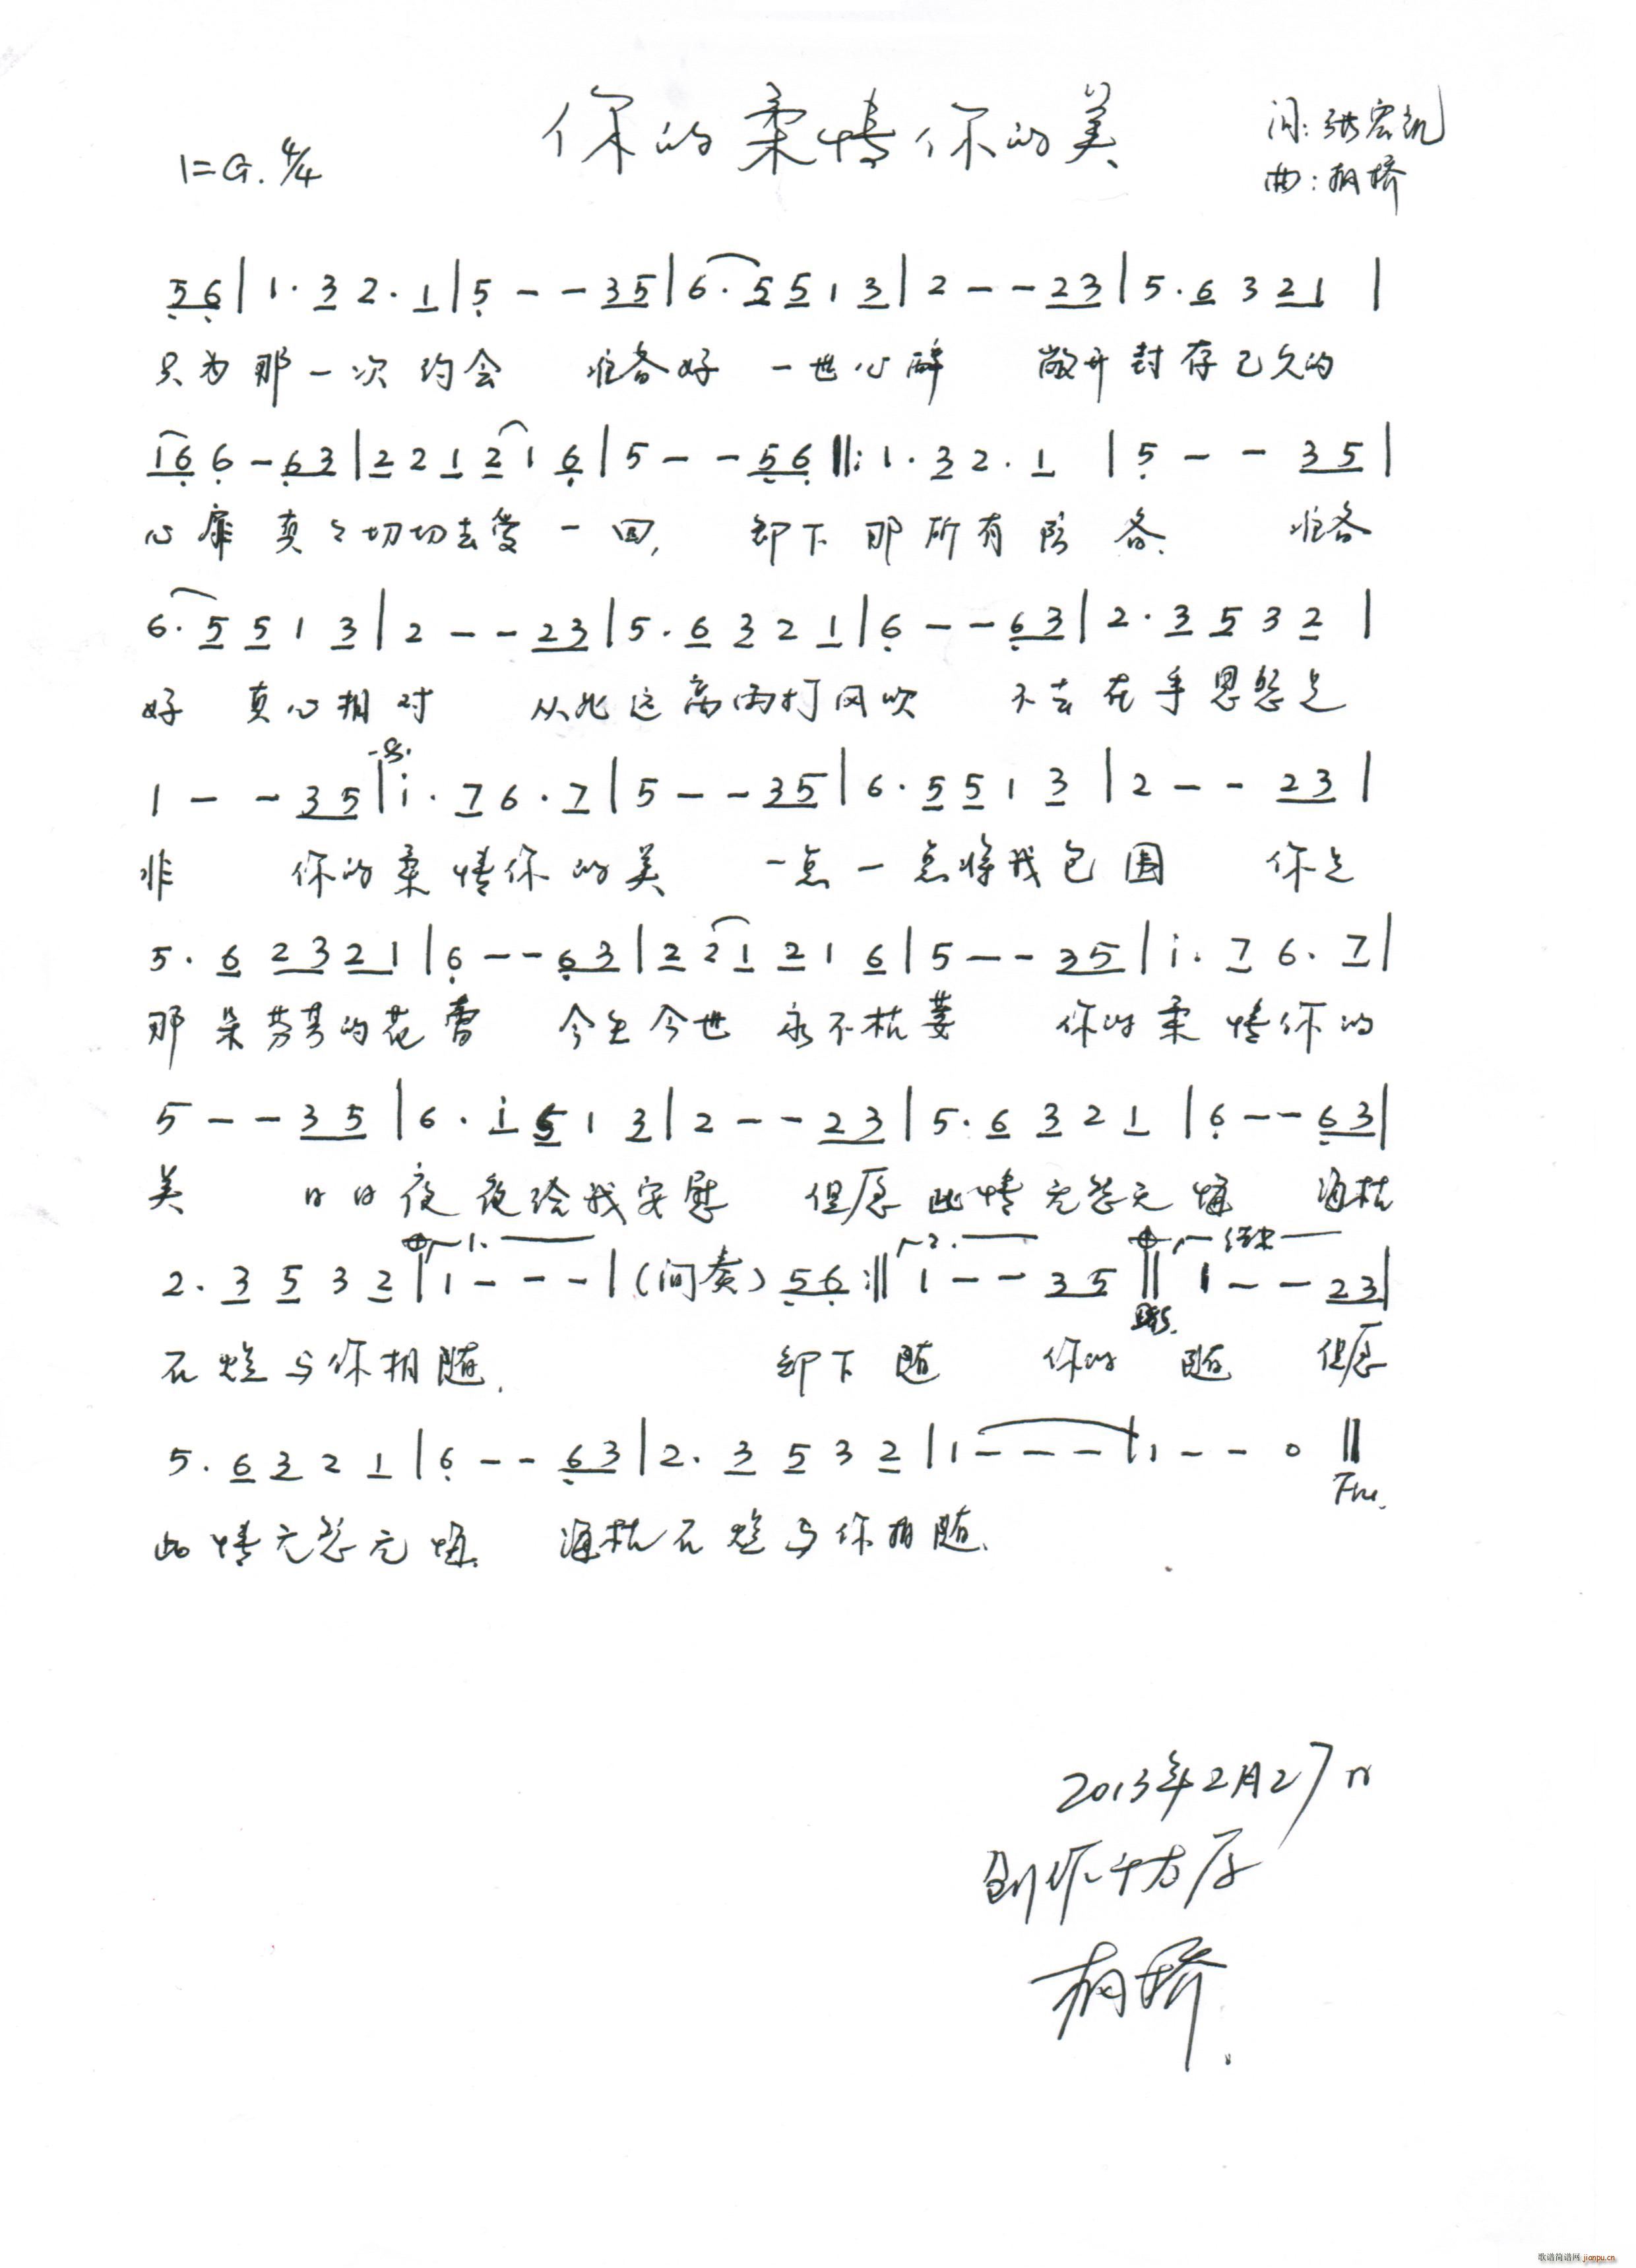 你的柔情你的美
词:张宏凯
1=G. 4/4
曲:柏桥
5 6 | 1 · 3 2 · 1 | 5 - - 3 5 | 6 · 5 5 1 3 | 2 - - 2 3 | 5 · 6 3 2 1 |
只为那一次约会 准备好一世心醉 敞开封存已久的
1 6 6 - 6 3 | 2 2 1 2 1 6 | 5 - - 5 6 ‖: 1 · 3 2 · 1 | 5 - - 3 5 |
心扉 真々切切去爱一回, 卸下那所有防备. 准备
6 · 5 5 1 3 | 2 - - 2 3 | 5 · 6 3 2 1 | 6 - - 6 3 | 2 · 3 5 3 2 |
好 真心相对 从此远离雨打风吹 不去在乎恩怨是
1 - - 3 5 | i · 7 6 · 7 | 5 - - 3 5 | 6 · 5 5 1 3 | 2 - - 2 3 |
非 你的柔情你的美 一点一点将我包围 你是
5 · 6 2 3 2 1 | 6 - - 6 3 | 2 2 1 2 1 6 | 5 - - 3 5 | i · 7 6 · 7 |
那朵芬芳的花蕾 今生今世永不枯萎 你的柔情你的
5 - - 3 5 | 6 · i 5 1 3 | 2 - - 2 3 | 5 · 6 3 2 1 | 6 - - 6 3 |
美 日日夜夜给我安慰 但愿此情无怨无悔 海枯
1. 2. 结束
2 · 3 5 3 2 | 1 - - - | (间奏) 5 6 :‖ 1 - - 3 5 ‖ 1 - - 2 3 |
石烂与你相随. 卸下随 你的 随 但愿
5 · 6 3 2 1 | 6 - - 6 3 | 2 · 3 5 3 2 | 1 - - - | 1 - - 0 ‖
Fine.
此情无怨无悔. 海枯石烂与你相随.
2013年2月27日
创作于方序
柏桥.
歌谱简谱网 jianpu.cn